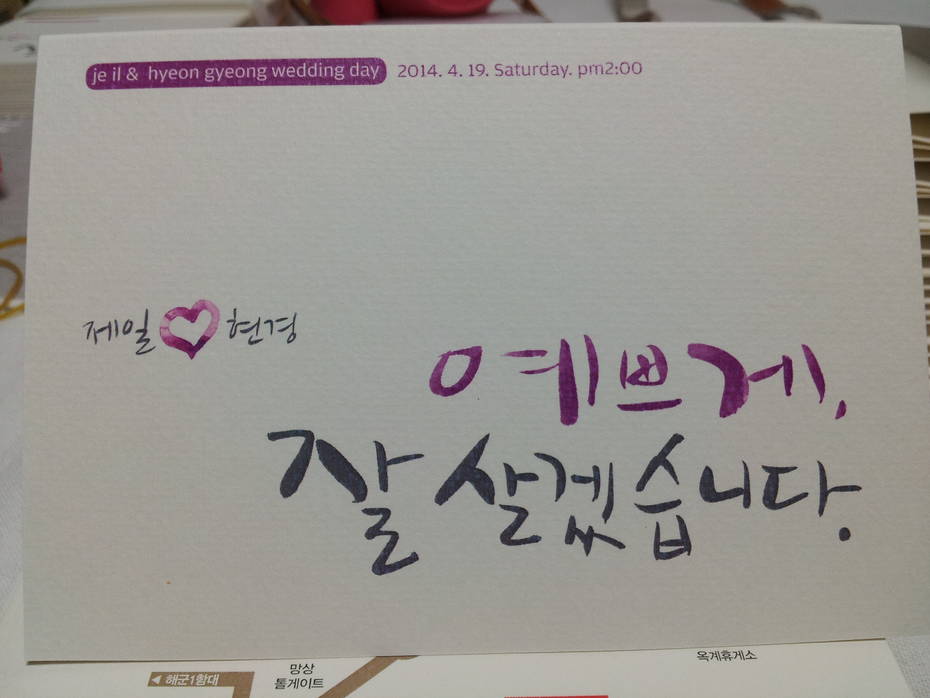 je il & hyeon gyeong wedding day 2014. 4. 19. Saturday. pm2:00
제일 현경
예쁘게,
잘 살겠습니다.
해군1함대
망상
톨게이트
옥계휴게소